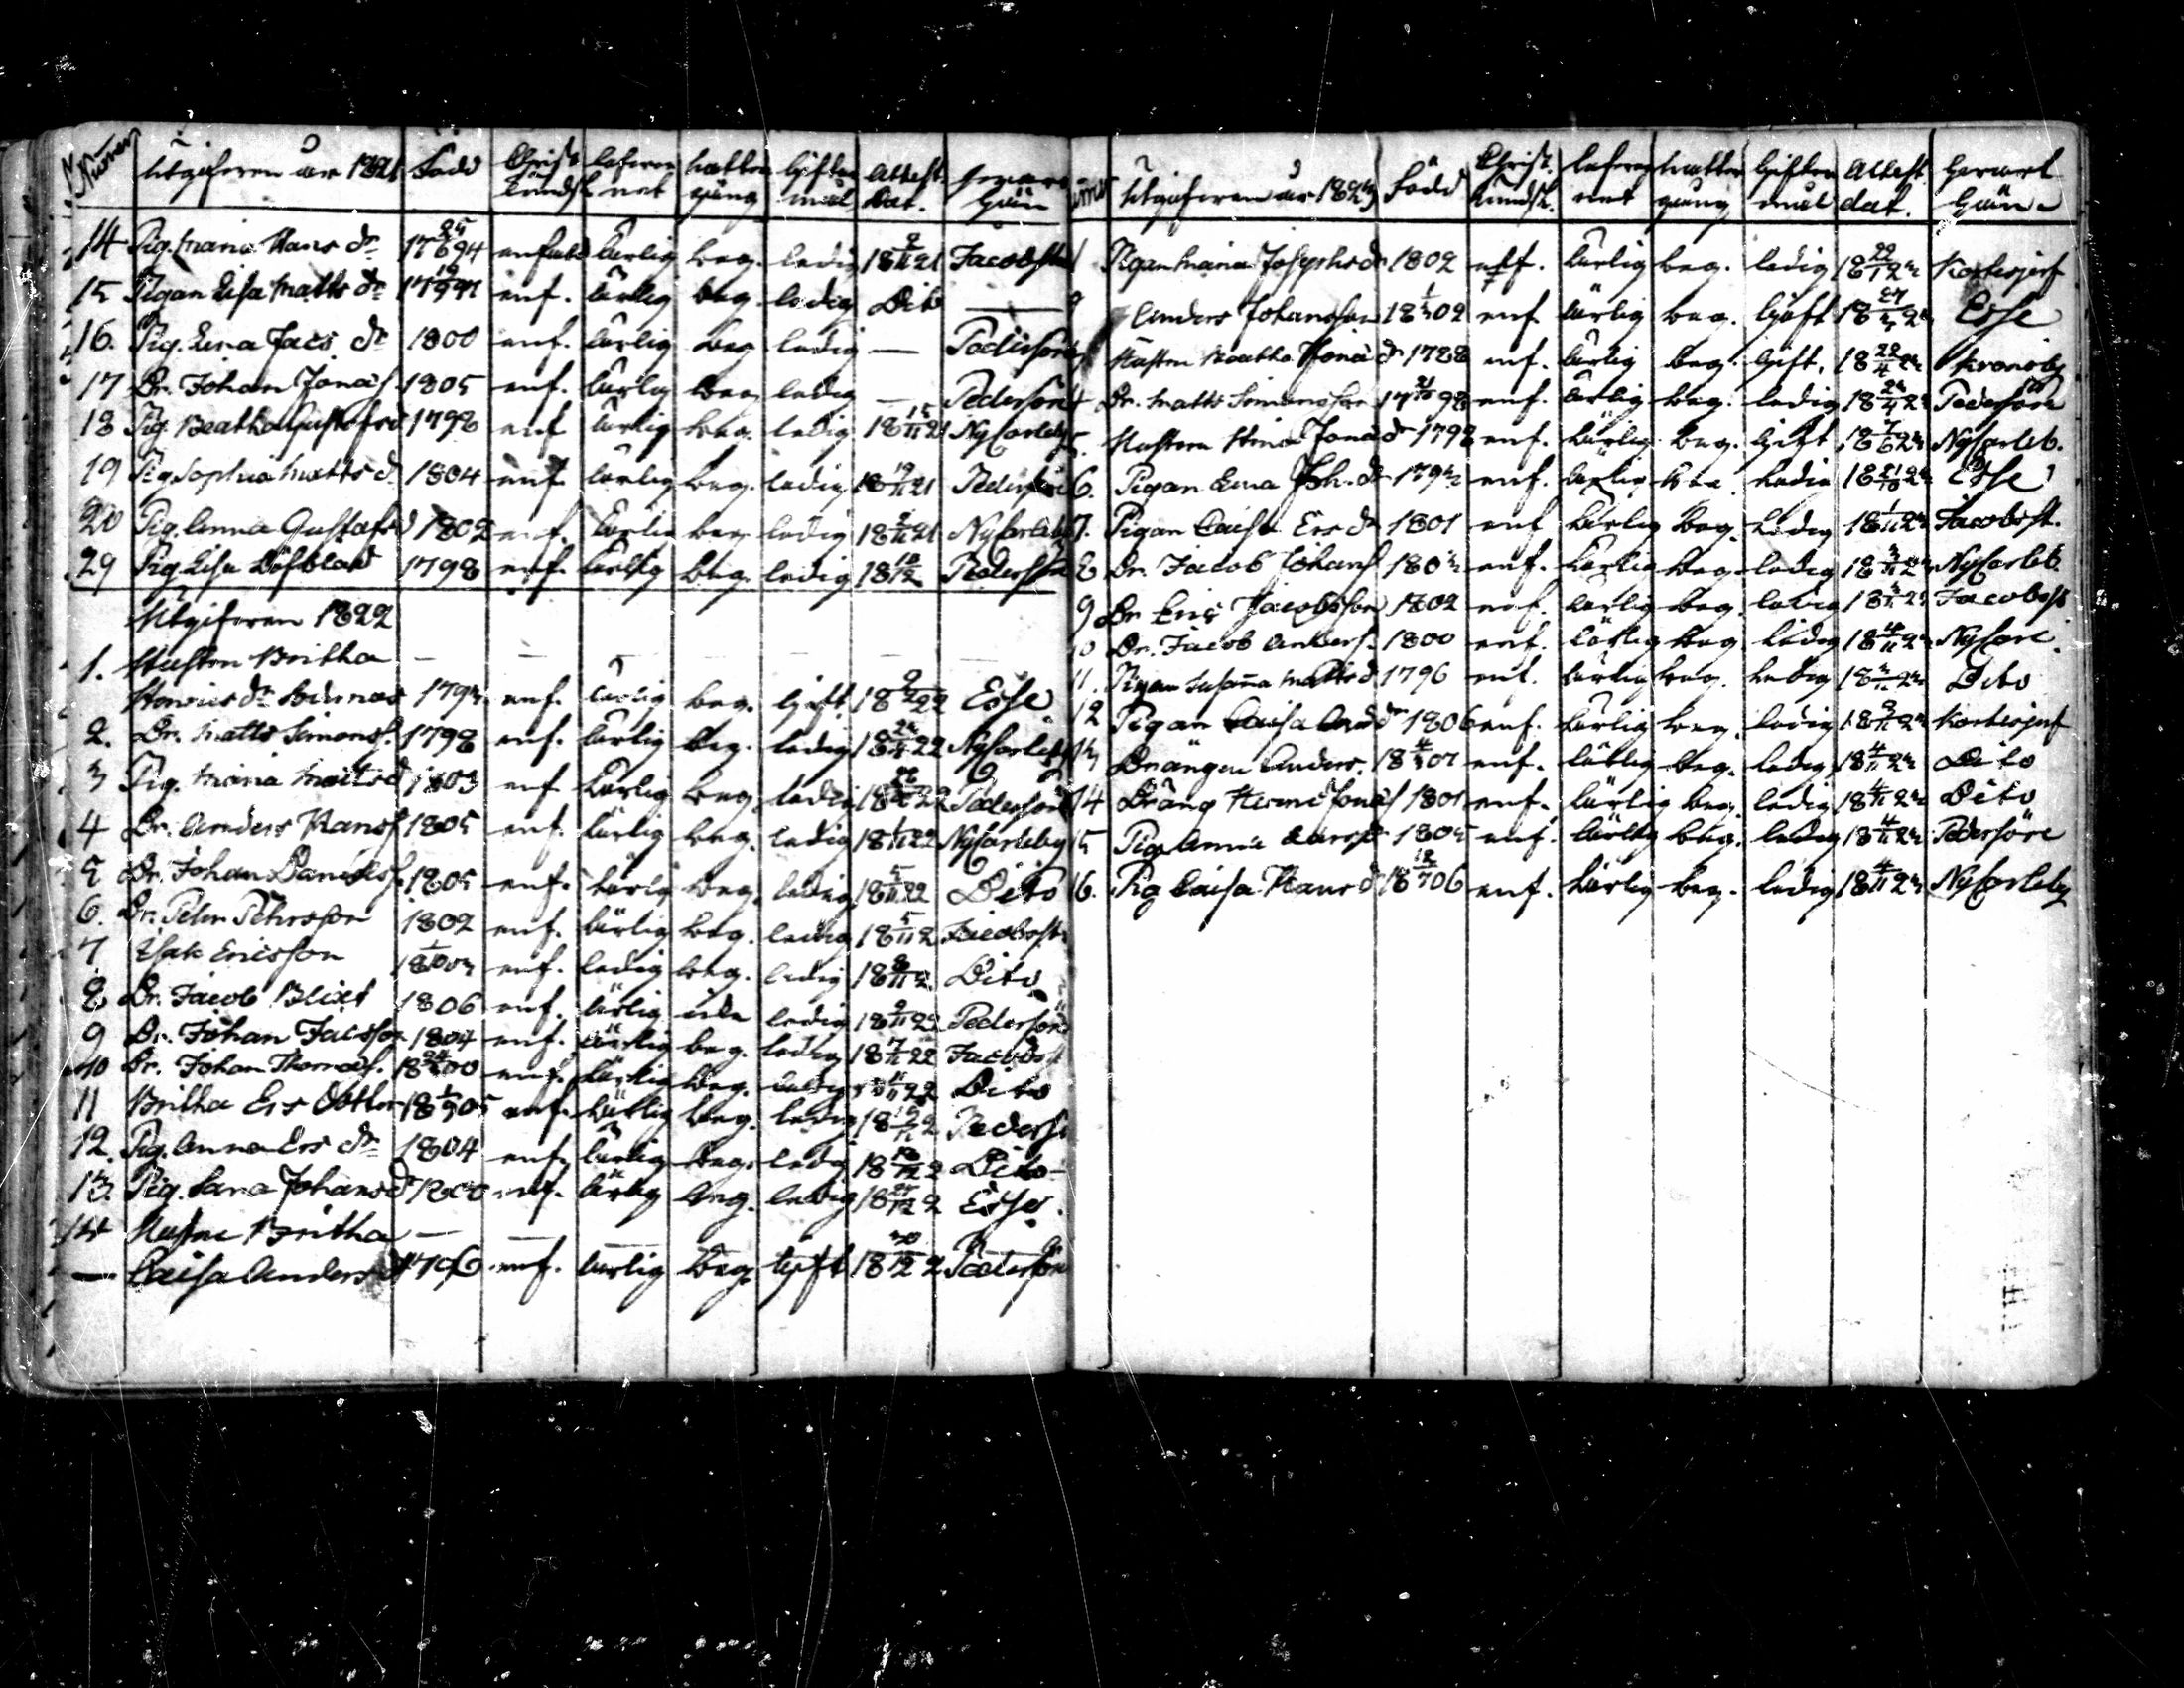 Numer Utgifven åar 1821 Född Christ. kundsk. lefver net nattv. gång Gifter mål Attest. Dat. Hvarest Gån
14 Pig. Maria Hans dr 17 25/6 94 enfald lärlig beg. ledig 18 2/11 21 Jacobst
15 Pigan Lisa Matts dr enf. lärlig beg. ledig Dito —
16. Pig. Lena Jacs dr 1800 enf. lärlig beg ledig — Pedersör
17 Dr. Johan Jonas. 1805 enf. lärlig beg ledig — Pedersör
18 Pig. Beatha Gustafsd 1798 enf lärlig beg. ledig 18 15/11 21 Nycarleby
19 Pig. Sophia Matts d. 1804 enf lärlig beg. ledig 18 19/11 21 Pedersöre
20 Pig. Anna Gustafsd 1802 enf. lärlig beg ledig 18 2/11 21 Nycarleby
29 Pig Lisa Löfblad 1798 enf. lärlig beg. ledig 18 18/12 Pedersör
Utgifven 1822
1. Hustru Britha — — — — — —
Henricsdr Södernäs enf. lärlig beg. gift 18 22 Esse
2. Dr. Matts Simons. 1798 enf. lärlig beg. ledig 18 22 Nycarleby
3 Pig. Maria Mattsd 1803 enf lärlig beg. ledig 18 22 Pedersör
4 Dr. Anders Hans. 1805 enf. lärlig beg. ledig 18 1/11 22 Nycarleby
5 Dr. Johan Daniels. 1805 enf. lärlig beg. ledig 18 5/11 22 Dito
6. Dr. Petter Pehrsson 1802 enf. lärlig beg. ledig 18 5/11 2 Jacobst
7 Isak Ericsson enf. ledig beg. ledig 18 8/11 2 Dito
8. Dr. Jacob Blixt 1806 enf. lärlig ledig 18 9/11 22 Pedersör
9 Dr. Johan Jacsson 1804 enf. lärlig beg. ledig 18 7/11 22 Jacobst
10 Dr. Johan Thomas. 18 00 enf. lärlig beg. ledig 18 11/11 22 Dito
11 Britha Ers dotter 18 1/9 05 enf. lärlig beg. ledig 18 2 Peders
12. Pig. Anna Ers dr 1804 enf. lärlig beg. ledig 18 10/12 2 Dito
13. Pig. Sara Johansd 1800 enf. lärlig beg. ledig 18 12 2 Esse
14 Hustru Britha — — —
— Caisa Anders d 1796 enf. lärlig beg. gift 18 30/12 2 Pedersör
Utgifven år 1823 Född Christ. kundsk. lefver net nattv. gång Gifter mål Attest dat. Hvarest Gån
1 Pigan Maria Josephsdr 1802 enf. lärlig beg. ledig 18 22/1 23 Kortesjerf
2 Anders Johansson 18 1/3 02 enf lärlig beg. gift 18 27/3 23 Esse
Hustru Beatha Jonæ d 1788 enf. lärlig beg. gift. 18 22/4 23 Kronoby
4 Dr. Matts Simonsson 17 21/10 98 enf. lärlig beg. ledig 18 23 Pedersöre
5. Hustru Stina Jonæ dr 1798 enf. lärlig beg. gift 18 7/6 23 Nycarleb.
6. Pigan Lena Joh. dr 1793 enf. lärlig beg. ledig 18 21/10 23 Esse
7. Pigan Caisa Ers dr 1801 enf lärlig beg. ledig 18 1/11 23 Jacobst.
8 Dr. Jacob Johans 1803 enf. lärlig beg. ledig 18 3/11 23 Nycarleb.
9 Dr Eric Jacobsson 1802 enf. lärlig beg. ledig 18 3/11 23 Jacobst
10 Dr. Jacob Anders. 1800 enf. lärlig beg ledig 18 4/11 23 Nycarl.
11. Pigan Susanna Mattsd 1796 enf. lärlig beg. ledig 18 3/11 23 Dito
12 Pigan Caisa And dr 1806 enf. lärlig beg. ledig 18 3/11 23 Kortesjerf
13 Drängen Anders. 18 4/3 07 enf. lärlig beg. ledig 18 4/11 23 Dito
14 Dräng Herme Jonas 1801 enf. lärlig beg. ledig 18 4/11 23 Dito
15 Pig Anna Larsd 1805 enf. lärlig beg. ledig 18 4/11 23 Pedersöre
16. Pig Caisa Hans d 18 06 enf. lärlig beg. ledig 18 4/11 23 Nycarleby